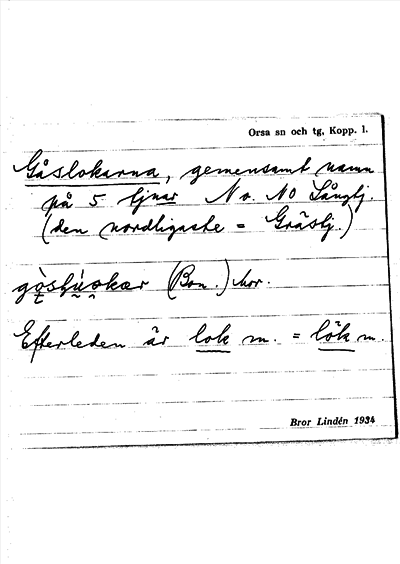 Orsa sn och tg, Kopp. l.
Gåslokarna, gemensamt namn
på 5 tjnar N o. NO Långtj.
(den nordligaste = Grästj.)
(Bon.) hor.
Efterleden är lok m. = lök m.
Bror Lindén 1934